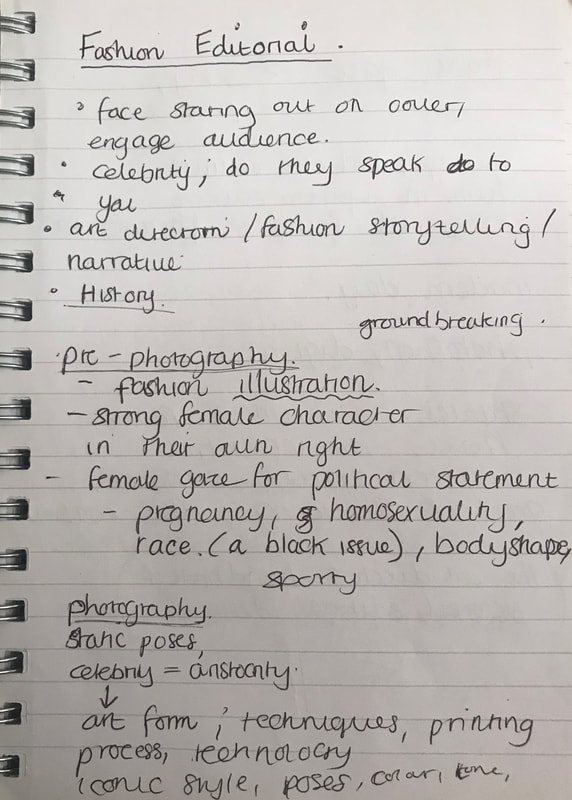 Fashion Editorial.
face staring out on cover,
engage audience.
celebrity; do they speak do to
you
art direction /fashion storytelling/
narrative
History.
groundbreaking.
pre-photography.
- fashion illustration.
- strong female character
in their own right
- female gaze for political statement
- pregnancy, homosexuality,
race. (a black issue), bodyshape,
sporty
photography.
static poses,
celebrity = aristocrity.
↓
art form ; techniques, printing
process, technology
iconic style, poses, colour, tone,